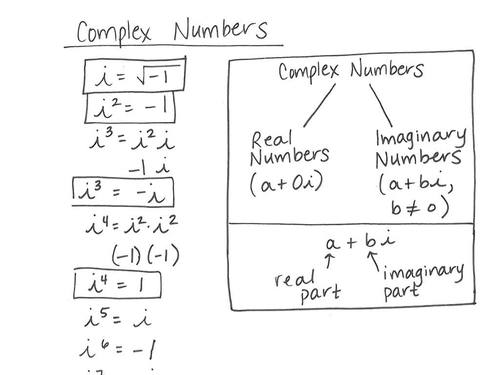 Complex Numbers
i = √-1
i² = -1
i³ = i² i
-1 i
i³ = -i
i⁴ = i² · i²
(-1)(-1)
i⁴ = 1
i⁵ = i
i⁶ = -1
Complex Numbers
Real
Numbers
(a + 0i)
Imaginary
Numbers
(a + bi,
b ≠ 0)
a + bi
real
part
imaginary
part